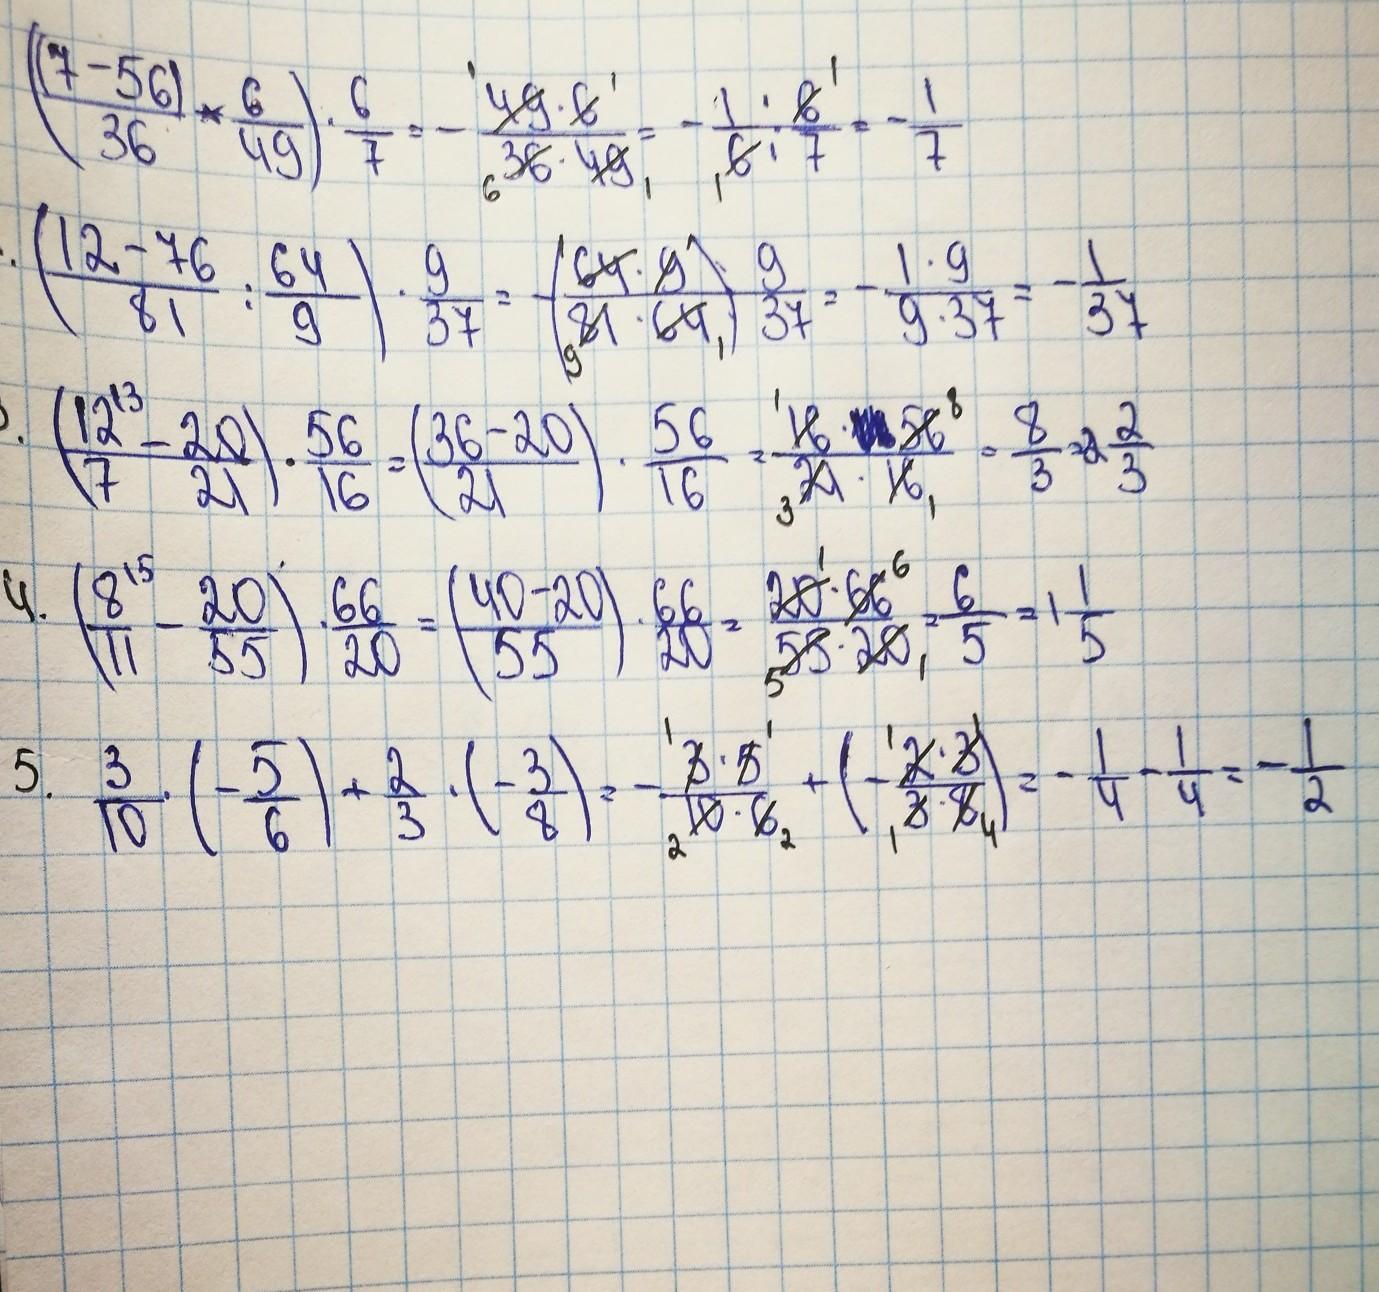 ((7-56)/36 * 6/49) · 6/7 = - 49·6/36·49 = - 1/6 · 6/7 = - 1/7
. (12-76/81 : 64/9) · 9/37 = -(64·9/81·64) 9/37 = - 1·9/9·37 = - 1/37
3. (12^13/7 - 20/21) · 56/16 = (36-20/21) · 56/16 = 16·56/21·16 = 8/3 = 2 2/3
4. (8^15/11 - 20/55) · 66/20 = (40-20/55) · 66/20 = 20·66/55·20 = 6/5 = 1 1/5
5. 3/10 · (- 5/6) + 2/3 · (- 3/8) = - 3·5/10·6 + (- 2·3/3·8) = - 1/4 - 1/4 = - 1/2